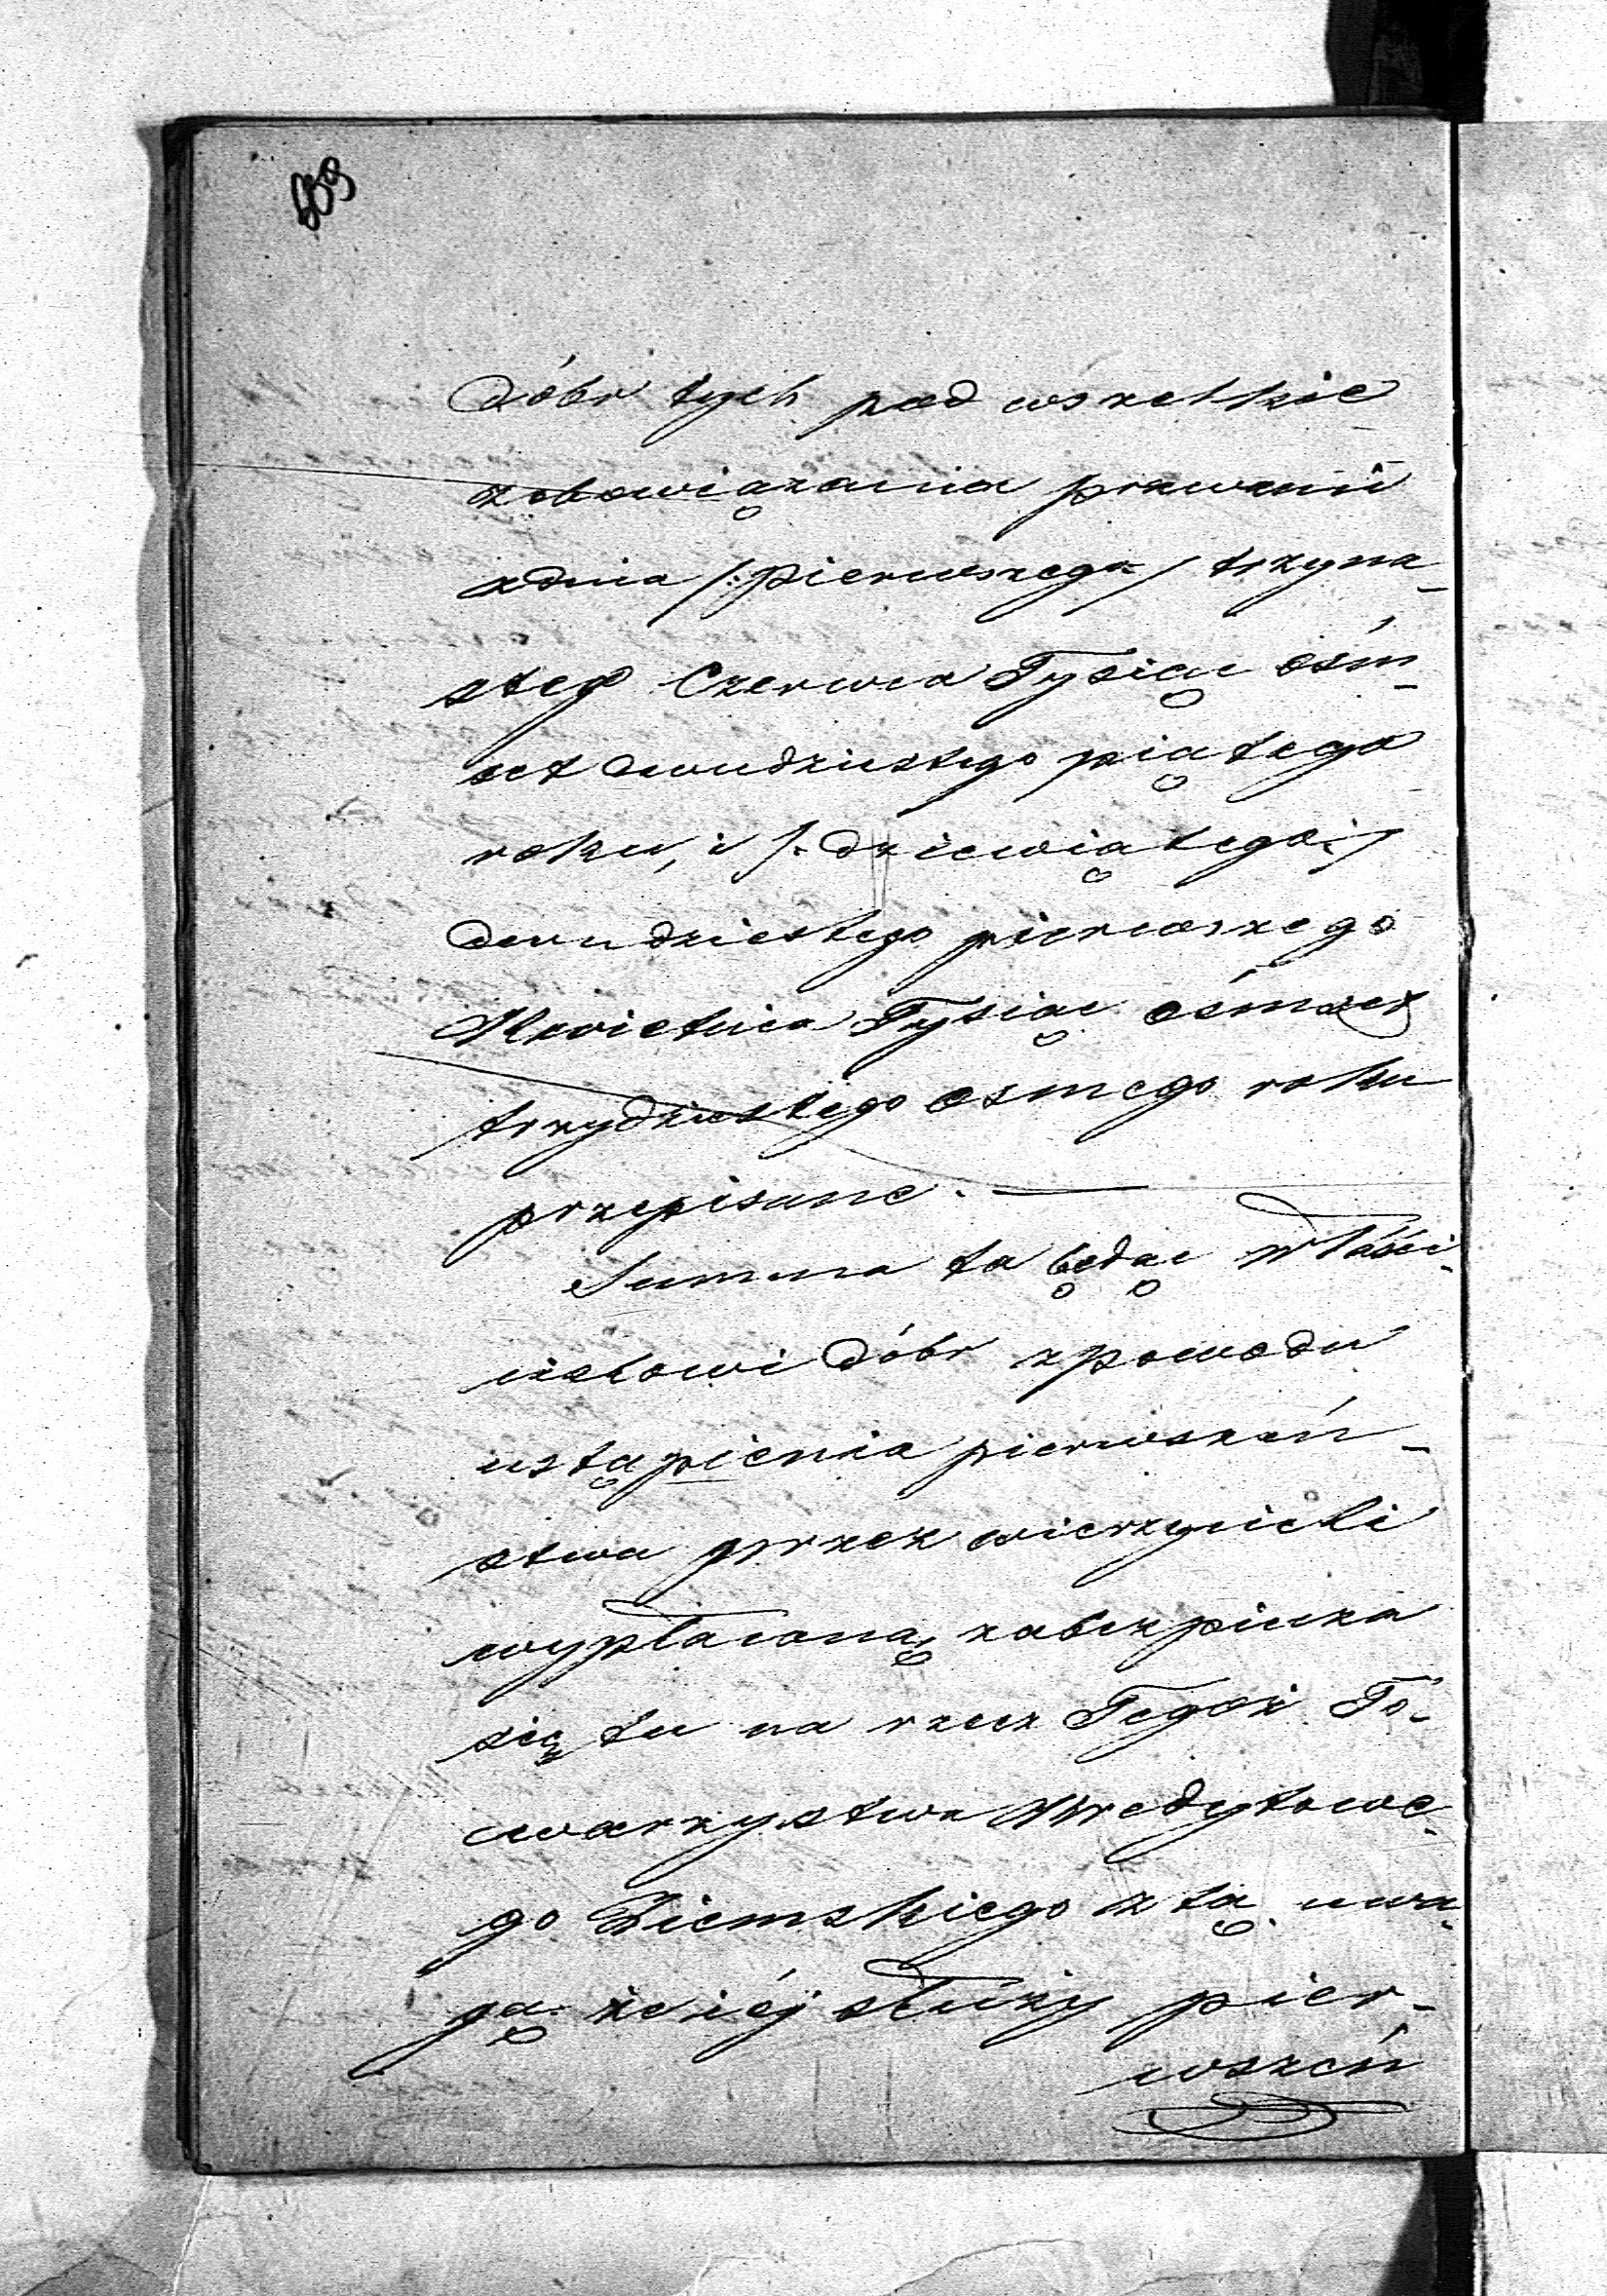 dóbr tych pod wszelkie
zobowiązania prawami
zdnia /: pierwszego / trzyna-
steg Czerwca Tysiąc ośm-
set dwudziestego piątego
roku, i /: dziewiątego :/
dwudziestego pierwszego
Kwietnia Tysiąc ośmset
trzydziestego osmego roku
przepisane. —
Summa ta będąc właści-
cielowi dóbr zpowodu
ustąpienia pierwszeń-
stwa przez wierzycieli
wypłaconą, zabezpiecza
się tu na rzecz Tegoż To-
warzystwa Kredytowe-
go Ziemskiego z tą uwa-
gą że iéj służy pier-
wszeń